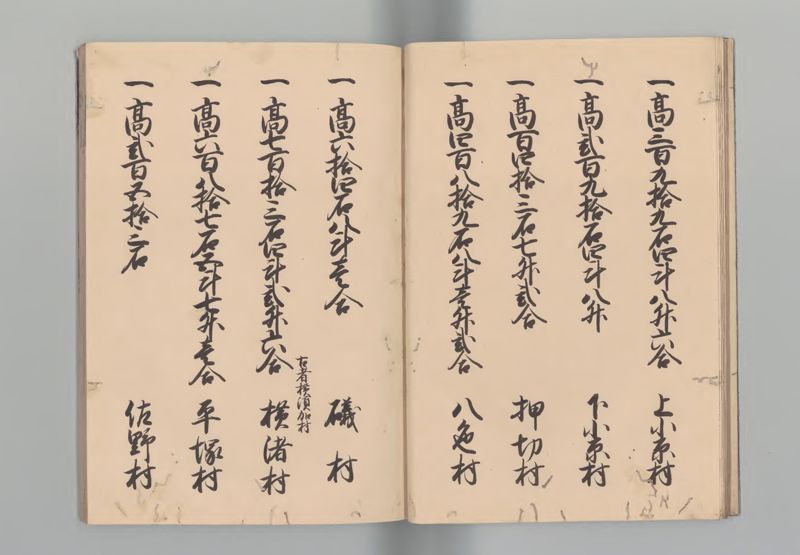 一高三百九拾九石四斗八升六合 上小原村
一高弐百九拾石四斗八升 下小原村
一高百四拾三石七升弐合 押切村
一高四百八拾九石八斗壱升弐合 八色村
一高六拾四石八斗壱合 礒村
古者横須加村
一高七百拾三石四斗弐升六合 横渚村
一高六百八拾七石五斗七升壱合 平塚村
一高弐百五拾三石 佐野村